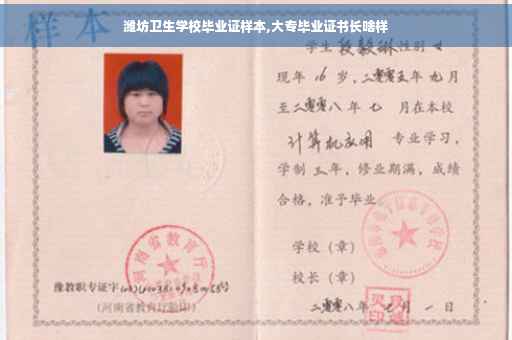 潍坊卫生学校毕业证样本,大专毕业证书长啥样
样本
学生段毅琳性别女
现年16岁,二零零五年九月
至二零零八年七月在本校
计算机应用 专业学习,
学制三年,修业期满,成绩
合格,准予毕业
学校(章)
校长(章)
二零零八年 月一日
河南省教育厅
豫教职专证字
(河南省教育厅验印)